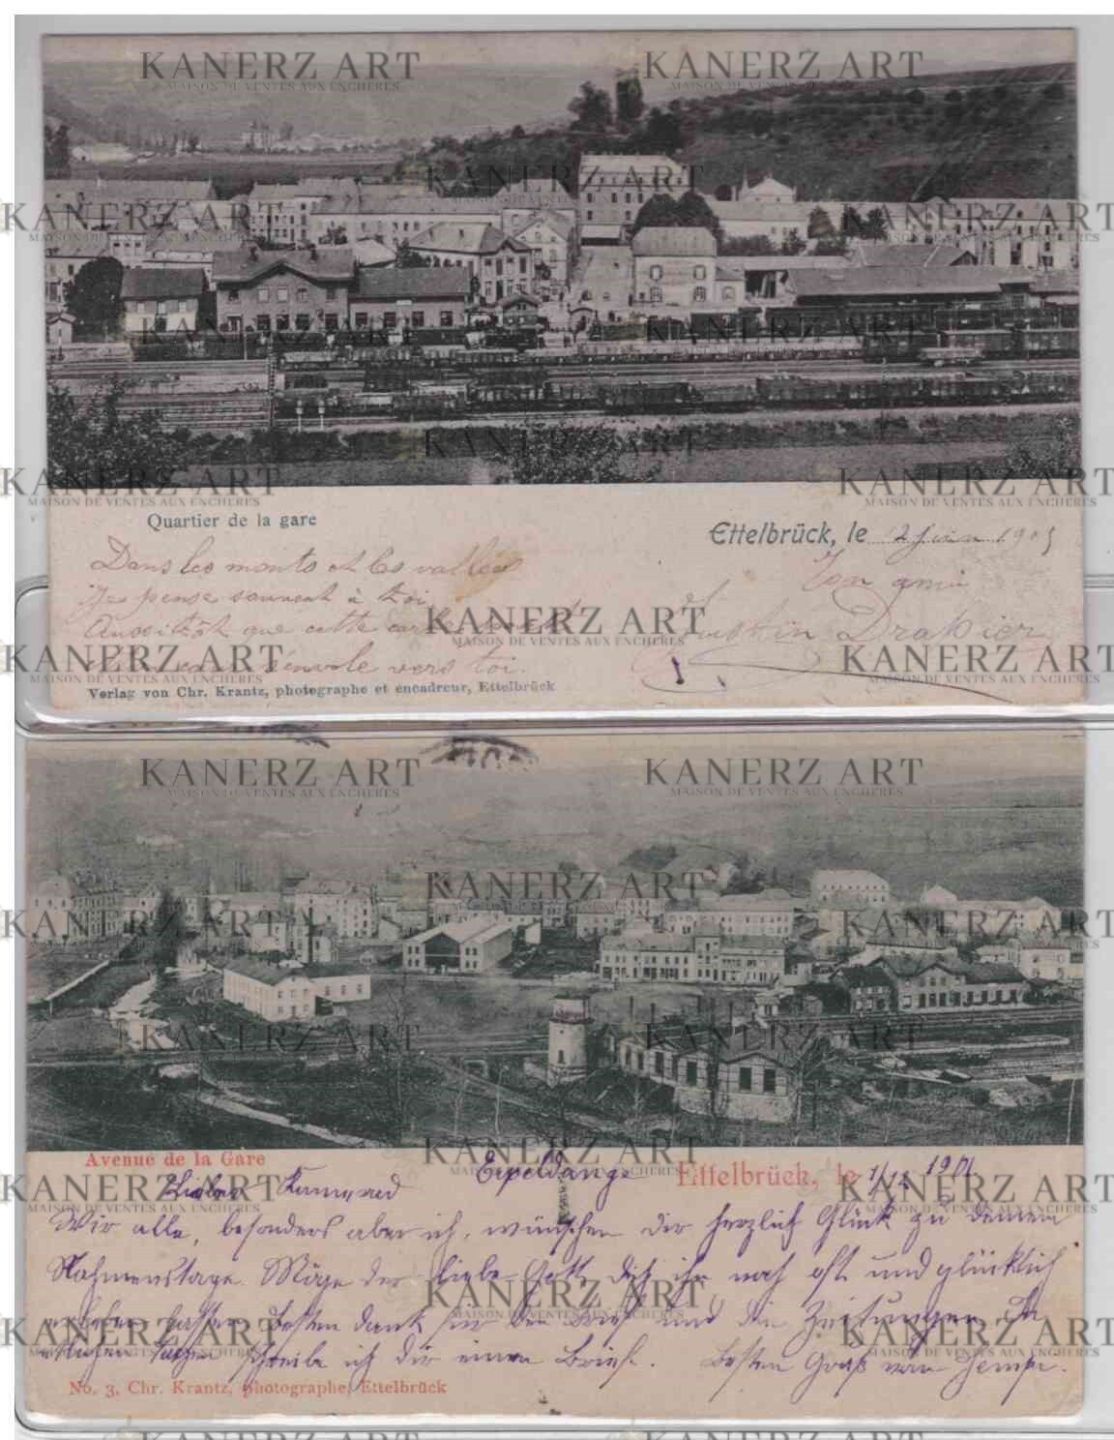 KANERZ ART
MAISON DE VENTES AUX ENCHERES
Quartier de la gare
Ettelbrück, le 12 Juin 1905
Dans les monts et les vallées
Je pense souvent à toi
Aussitôt que cette carte
vers toi.
Ton ami
Drabier
Verlag von Chr. Krantz, photographe et encadreur, Ettelbrück
Avenue de la Gare
Erpeldange
Ettelbrück, le 1/12 1901
Lieber Kamerad
Wir alle, besonders aber ich, wünschen dir herzlich Glück zu deinem
Nahmenstage. Möge der liebe Gott dich ihn noch oft und glücklich
erleben lassen. Besten dank für den Brief und die Zeitungen. In
etlichen tagen schreibe ich dir einen Brief. Besten Gruß von
No. 3, Chr. Krantz, photographe, Ettelbrück